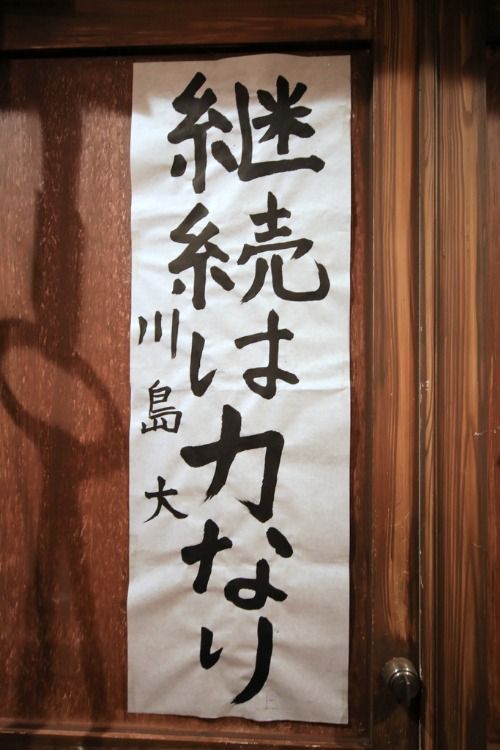 継続は力なり
川島大